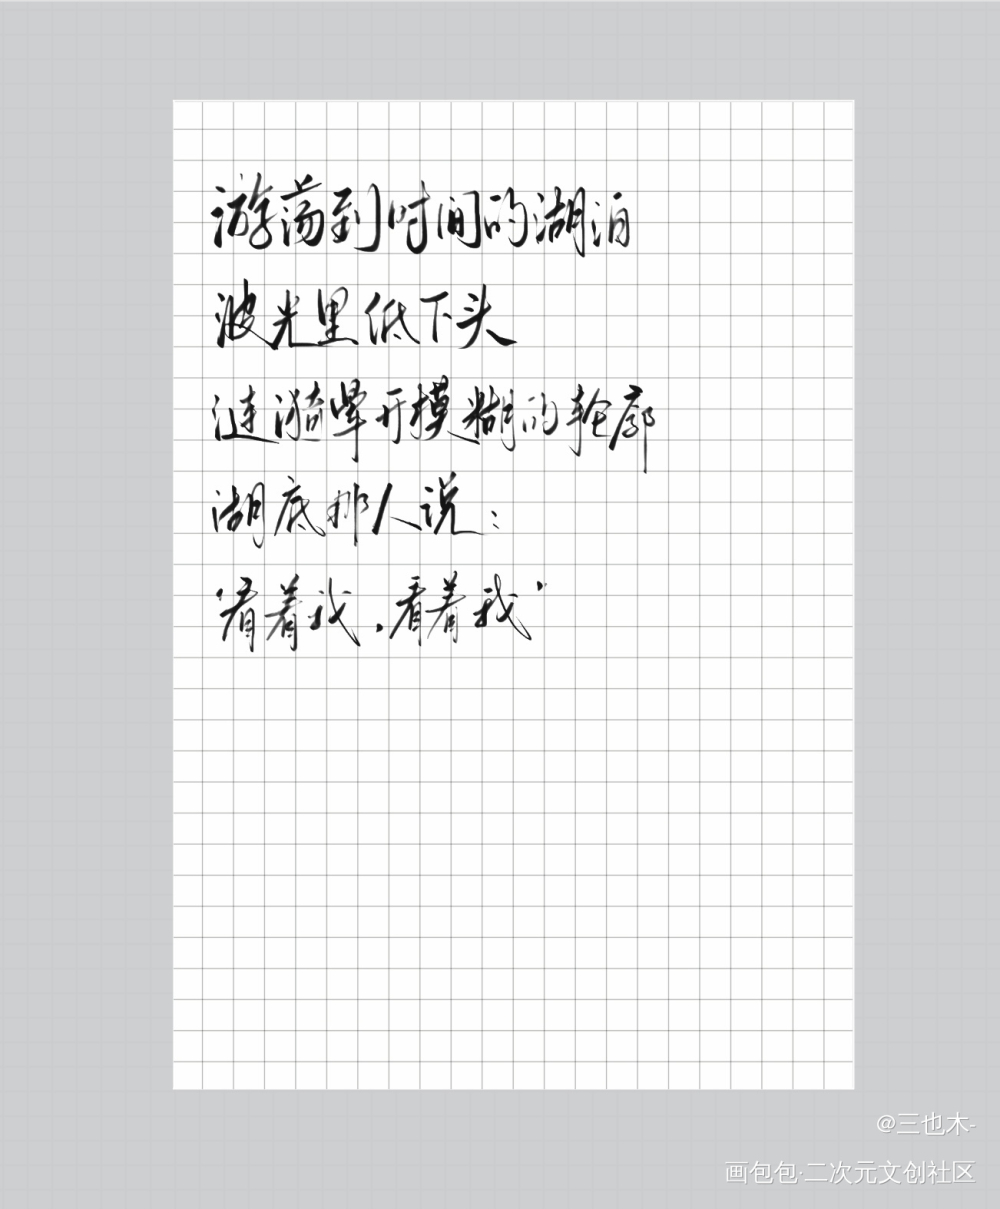 游荡到时间的湖泊
波光里低下头
涟漪晕开模糊的轮廓
湖底那人说：
“看着我，看着我”
@三也木-
画包包·二次元文创社区